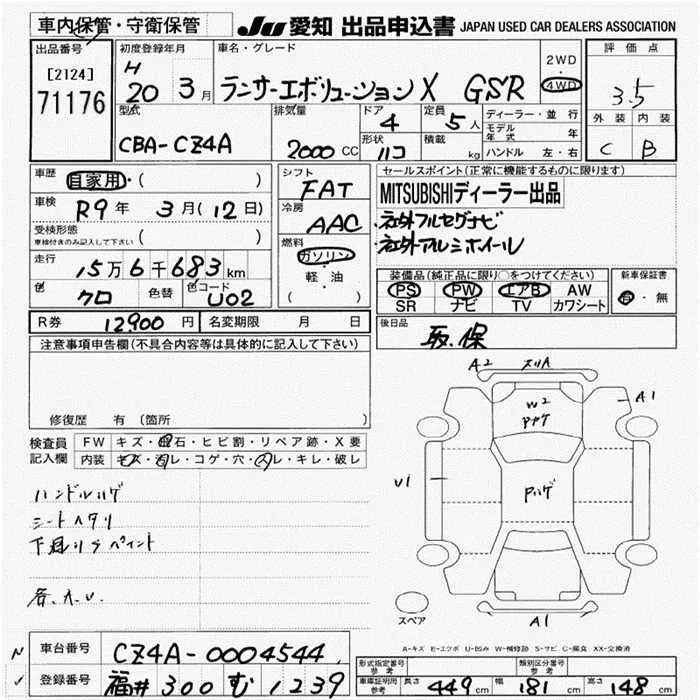 車内保管・守衛保管
JU 愛知 出品申込書 JAPAN USED CAR DEALERS ASSOCIATION
出品番号
[2124]
71176
初度登録年月
H
20 3月
車名・グレード
ランサーエボリューションX GSR
2WD
・
4WD
評価点
3.5
外装 内装
C B
型式
CBA-CZ4A
排気量
2000 CC
ドア
4
形状
ハコ
定員
5人
積載
kg
ディーラー・並行
モデル年式 年
ハンドル 左・右
車歴 自家用・( )
車検 R9年 3月(12日)
受検形態
車検付きのみ記入して下さい ( )
走行 15万6千683km
色 クロ 色替 色コード U02
シフト
FAT
冷房
AAC
燃料
ガソリン
軽・油
( )
セールスポイント(正常に機能するものに限ります)
MITSUBISHIディーラー出品
・社外フルセグナビ
・社外アルミホイール
装備品(純正品に限り○をつけてください)
PS PW エアB AW
SR ナビ TV カワシート
新車保証書
有・無
R券 12900円 名変期限 月 日
後日品
取.保
注意事項申告欄(不具合内容等は具体的に記入して下さい)
修復歴 有 (箇所 )
検査員
記入欄
FW キズ・飛石・ヒビ割・リペア跡・X要
内装 キズ・汚レ・コゲ・穴・スレ・キレ・破レ
ハンドルハゲ
シートヘタリ
下廻りサペイント
各.A.U.
A2 スリA
A1
W2
アヤケ
U1
Pハゲ
A1
スペア
A-キズ E-エクボ U-凹み W-補修跡 S-サビ C-腐食 XX-交換済
車台番号 CZ4A-0004544
登録番号 福井 300 む 1239
形式指定番号
参考
類別区分番号
参考
車庫証明用
参考
長さ 449cm 幅 181cm 高さ 148cm